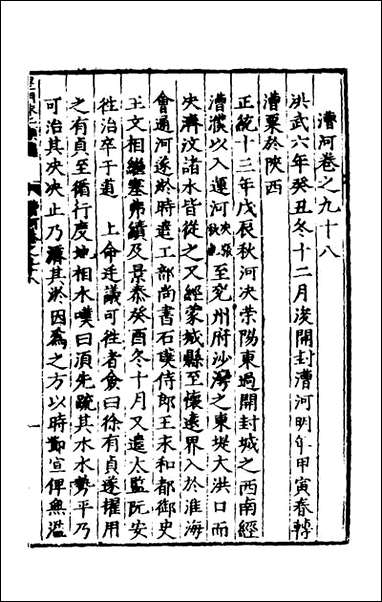 漕河卷之九十八
洪武六年癸丑冬十二月浚開封漕河明年甲寅春轉
漕粟於陝西
正統十三年戊辰秋河決滎陽東過開封城之西南經
漕濮以入運河至兖州府沙灣之東堤大洪口而
決濟汶諸水皆從之又經蒙城縣至懷遠界入於淮海
會通河遂淤時遣工部尚書石璞侍郎王永和都御史
王文相繼塞弗績及景泰癸酉冬十月又遣太監阮安
徃治卒于道 上命廷議可徃者僉曰徐有貞遂擢用
之有貞至循行度地相水嘆曰須先疏其水水勢平乃
可治其決決止乃濬其淤因為之方以時節宣俾無濫